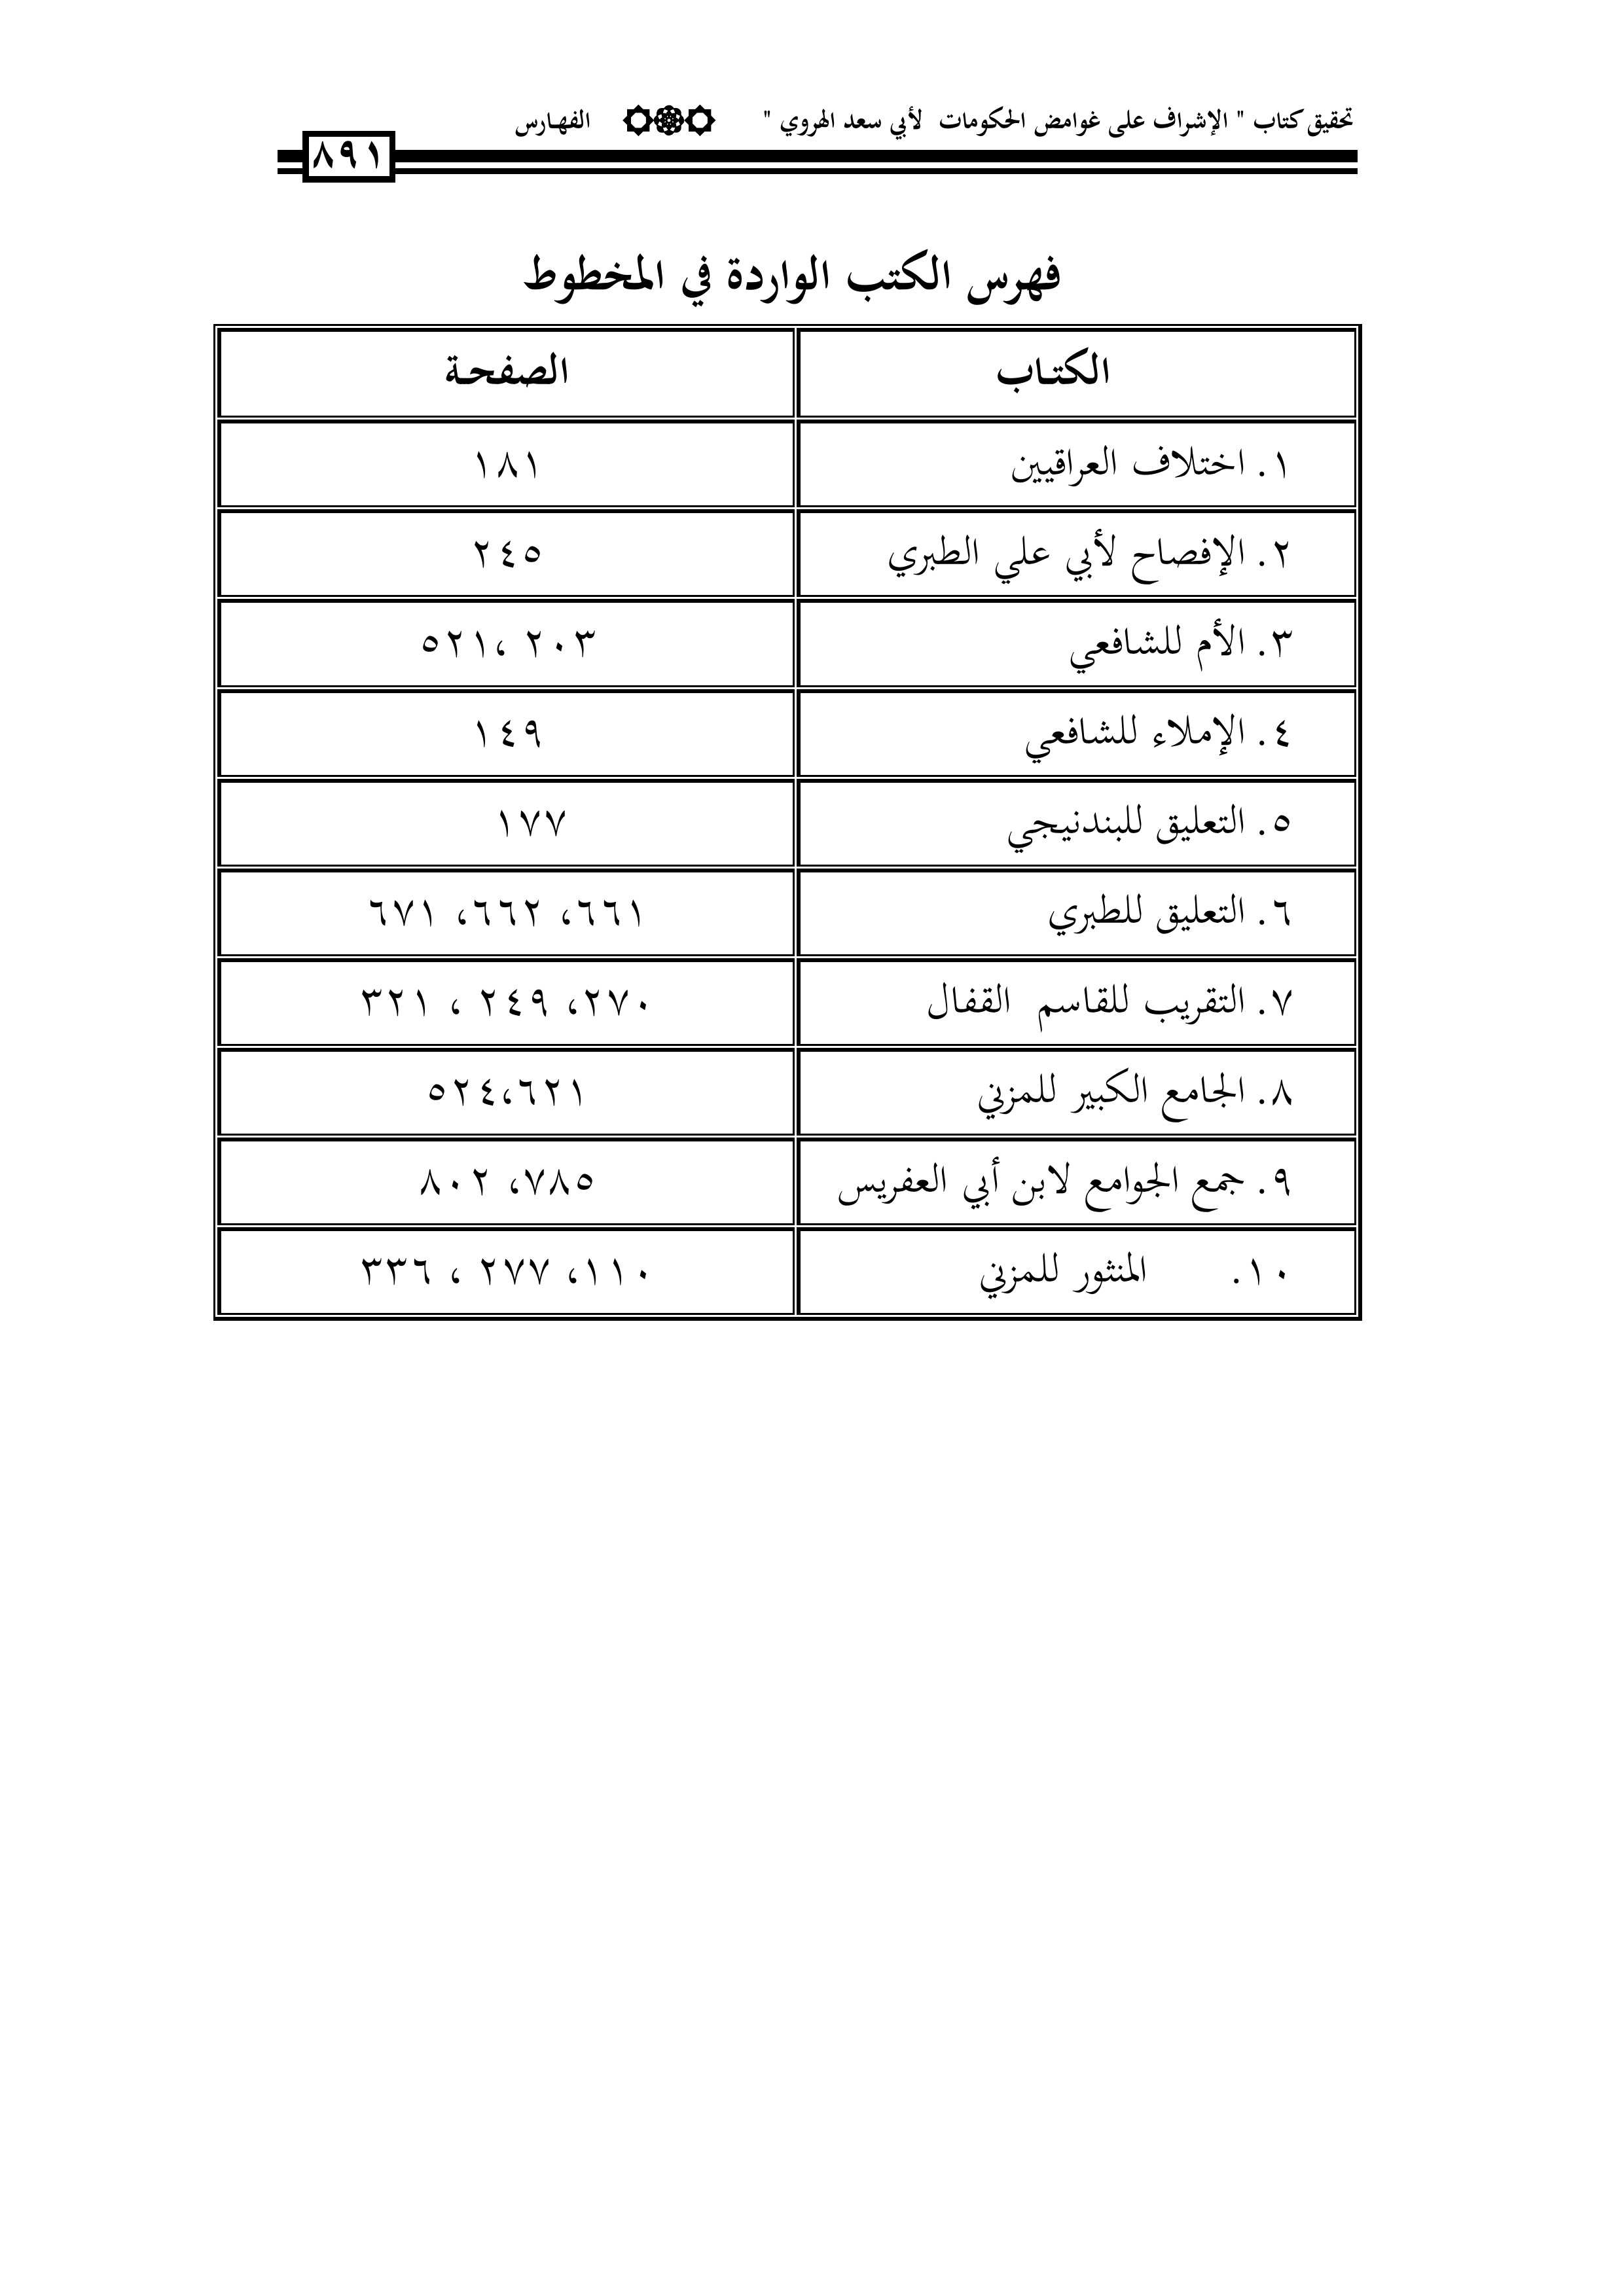 تحقيق كتاب " الإشراف على غوامض الحكومات لأبي سعد الهروي " الفهارس
٨٩١
فهرس الكتب الواردة في المخطوط
الكتاب الصفحة
١. اختلاف العراقيين ١٨١
٢. الإفصاح لأبي علي الطبري ٢٤٥
٣. الأم للشافعي ٢٠٣ ،٥٢١
٤. الإملاء للشافعي ١٤٩
٥. التعليق للبندنيجي ١٧٧
٦. التعليق للطبري ٦٦١، ٦٦٢، ٦٧١
٧. التقريب للقاسم القفال ٢٧٠، ٢٤٩ ، ٣٢١
٨. الجامع الكبير للمزني ٦٢١،٥٢٤
٩. جمع الجوامع لابن أبي العفريس ٧٨٥، ٨٠٢
١٠. المنثور للمزني ١١٠، ٢٧٧ ، ٣٣٦